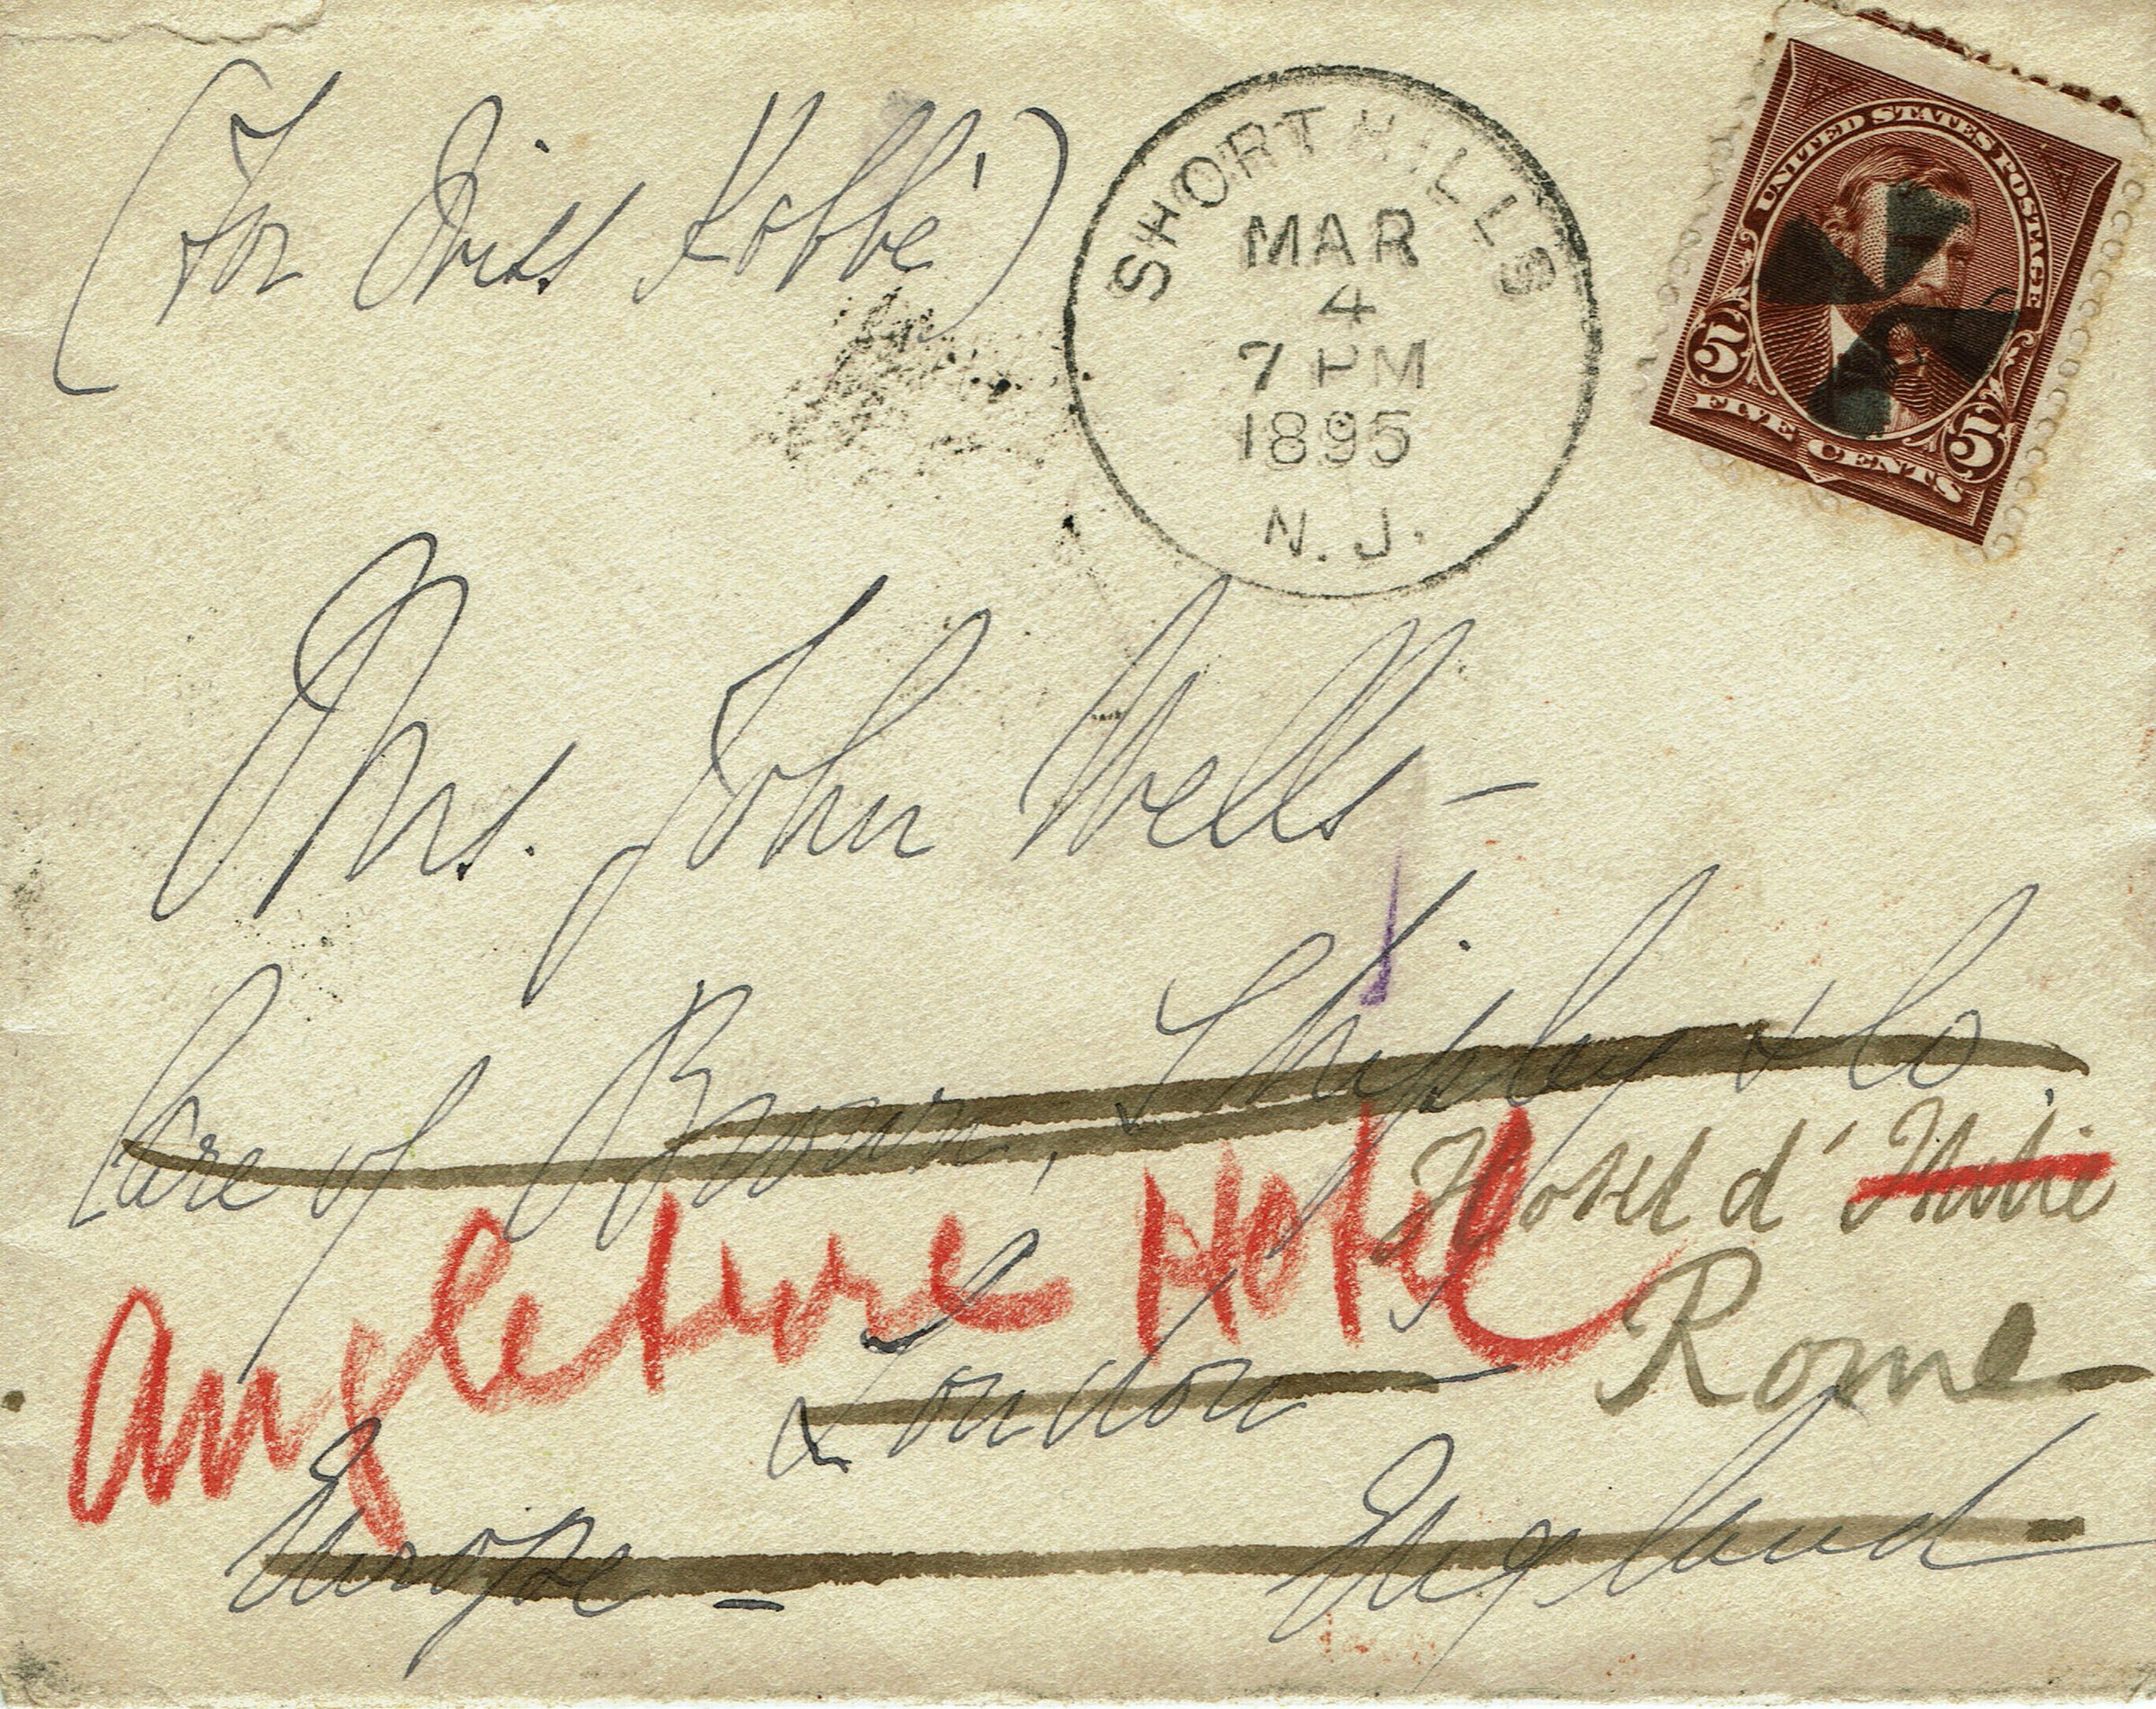 (For Miss Kobbé)
SHORT HILLS
MAR
4
7 PM
1895
N. J.
UNITED STATES POSTAGE
5 5
FIVE CENTS
Mrs. John Wells –
Care of Brown, Shipley & Co.
Hotel d'Italie
Angleterre Hotel
Rome
London –
Europe –
England